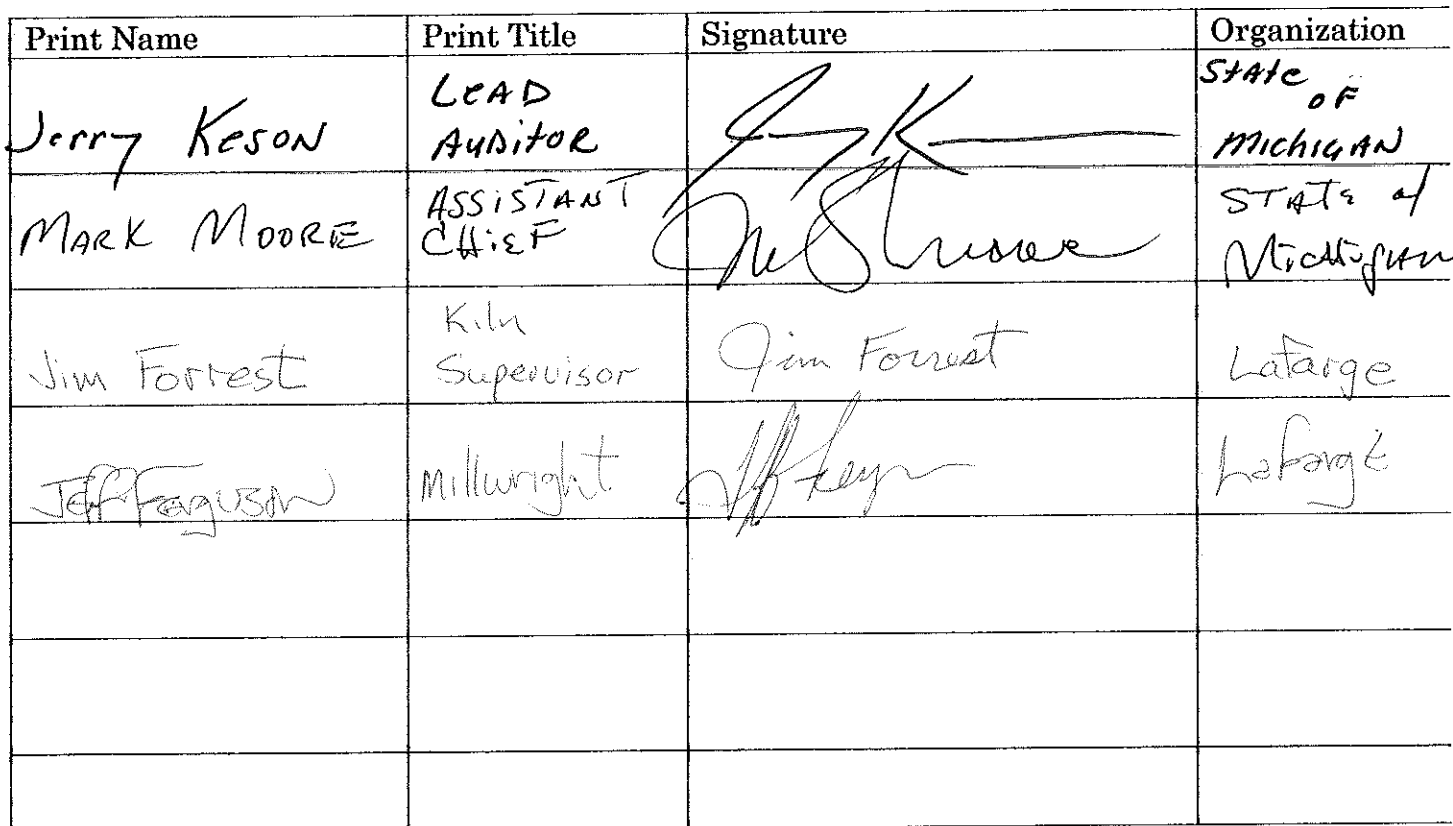 Print Name Print Title Signature Organization
Jerry Keson LEAD AUDITOR State OF MICHIGAN
MARK MOORE ASSISTANT CHIEF STATE of Michigan
Jim Forrest Kiln Supervisor Jim Forrest Lafarge
Jeff Ferguson Millwright Lafarge